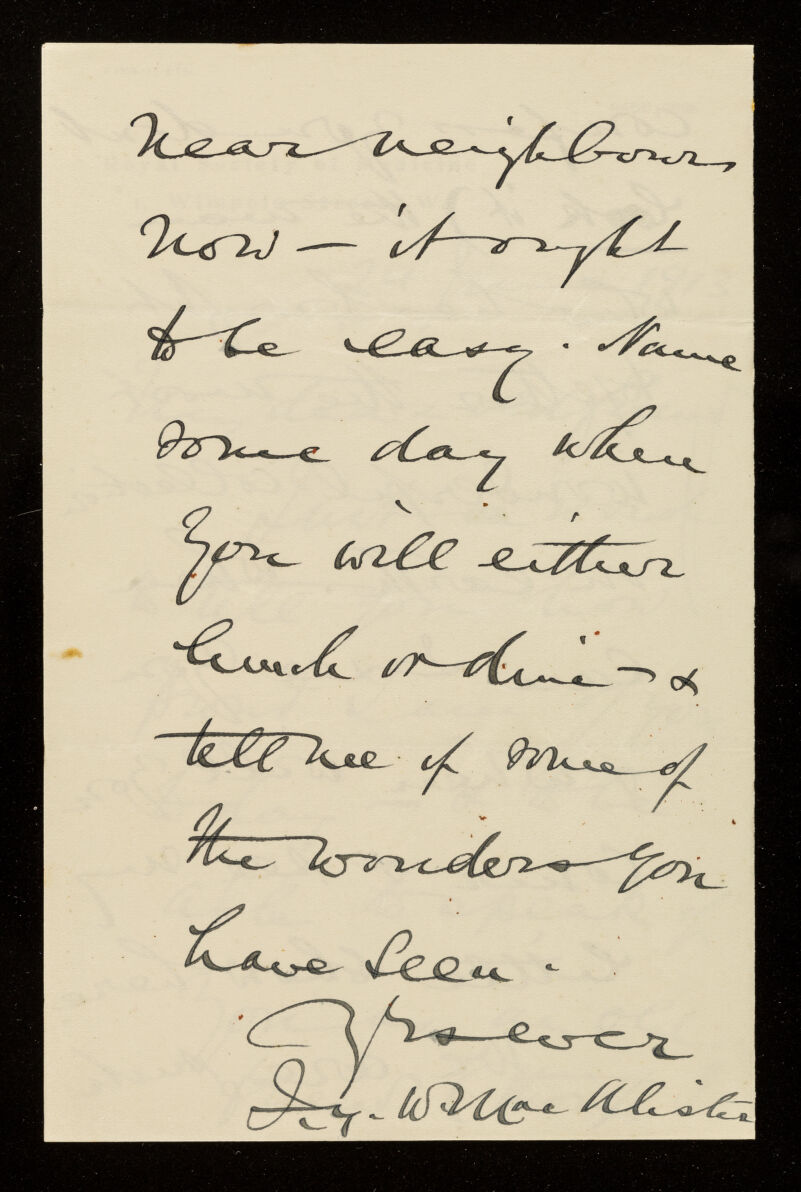 near neighbours
now – it ought
to be easy. Name
some day when
you will either
lunch or dine – &
tell me of some of
the wonders you
have seen.
Yrs ever
J.Y.W. MacAlister